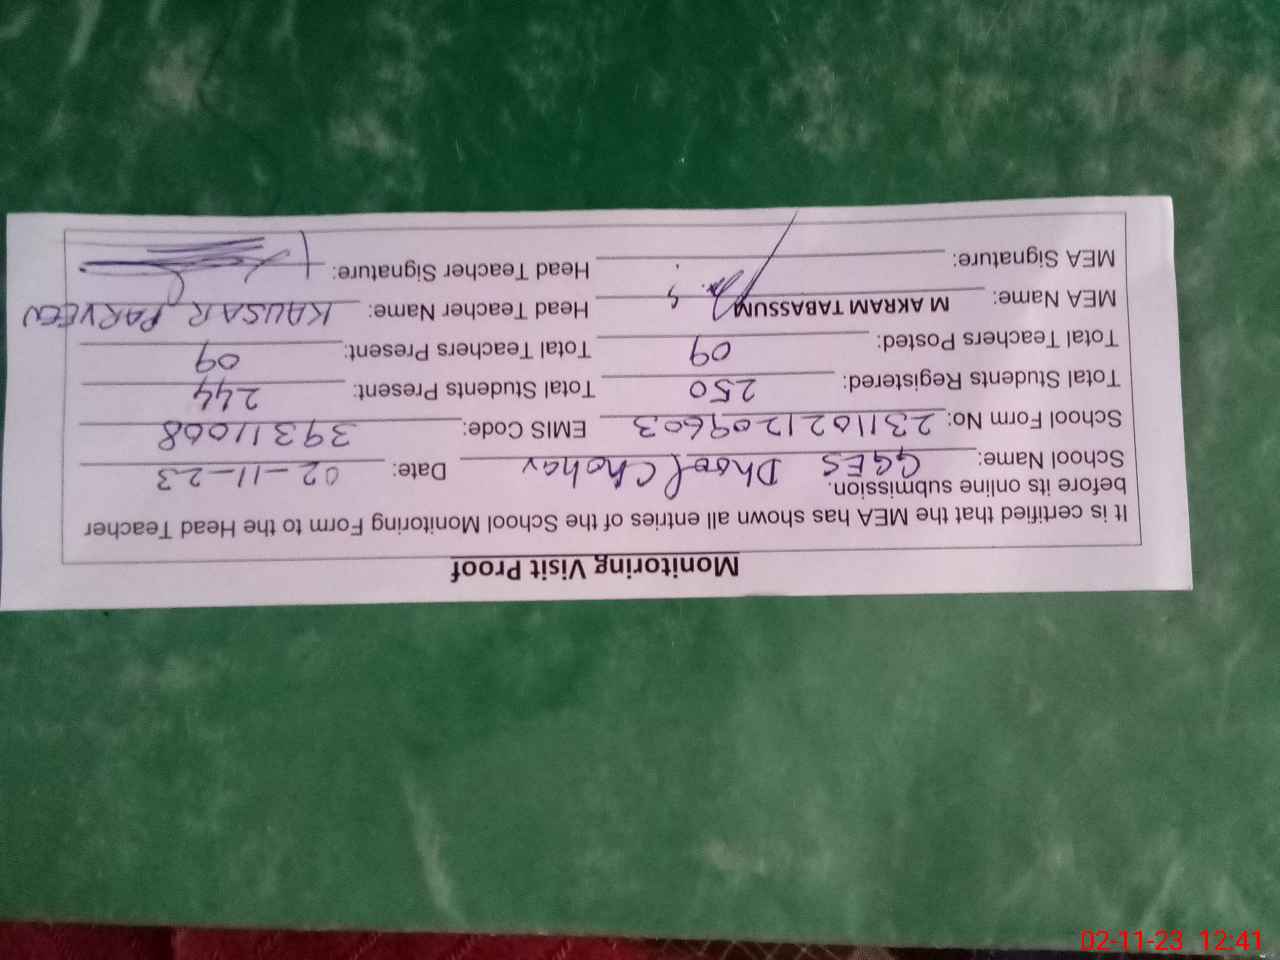 Monitoring Visit Proof
It is certified that the MEA has shown all entries of the School Monitoring Form to the Head Teacher
before its online submission.
School Name: GGES Dhool Chohan Date: 02-11-23
School Form No: 231102120960 3 EMIS Code: 39311008
Total Students Registered: 250 Total Students Present: 244
Total Teachers Posted: 09 Total Teachers Present: 09
MEA Name: M AKRAM TABASSUM Head Teacher Name: KAUSAR PARVEEN
MEA Signature: Head Teacher Signature:
02-11-23 12:41